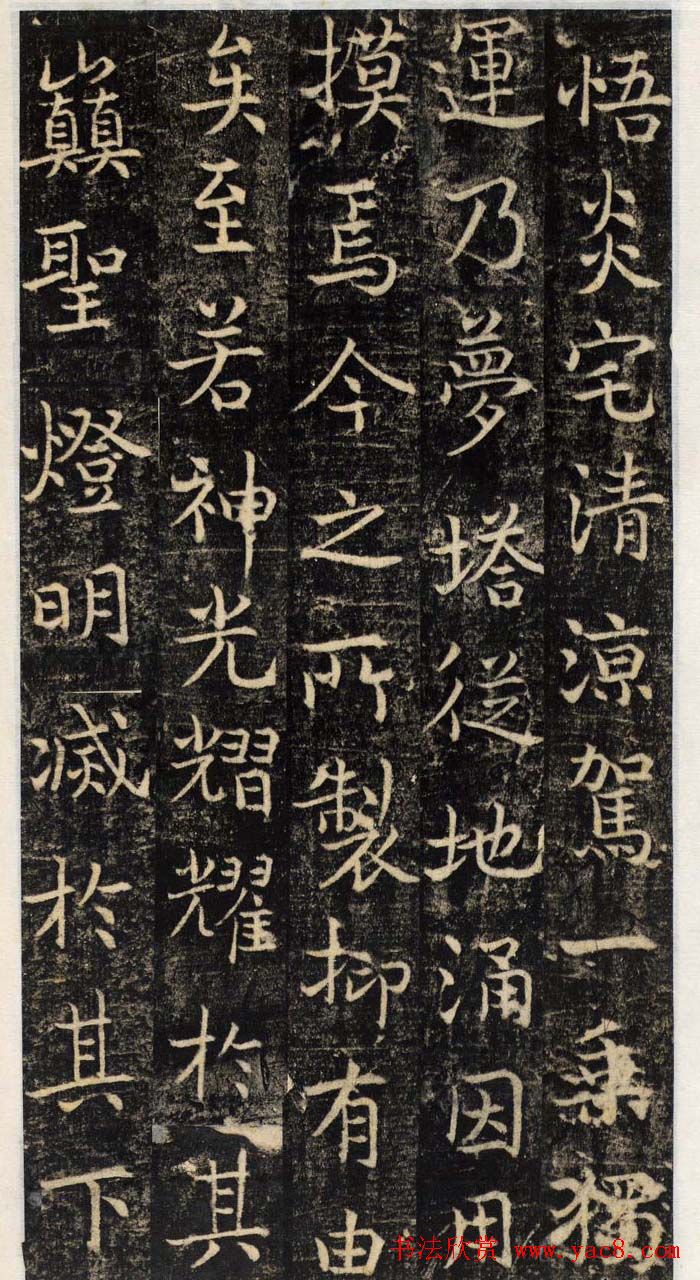 悟炎宅清涼駕一乗獨
運乃夢塔從地涌因用
摸焉今之所製抑有由
矣至若神光熠耀於其
巔聖燈明滅於其下
书法欣赏 www.yac8.com